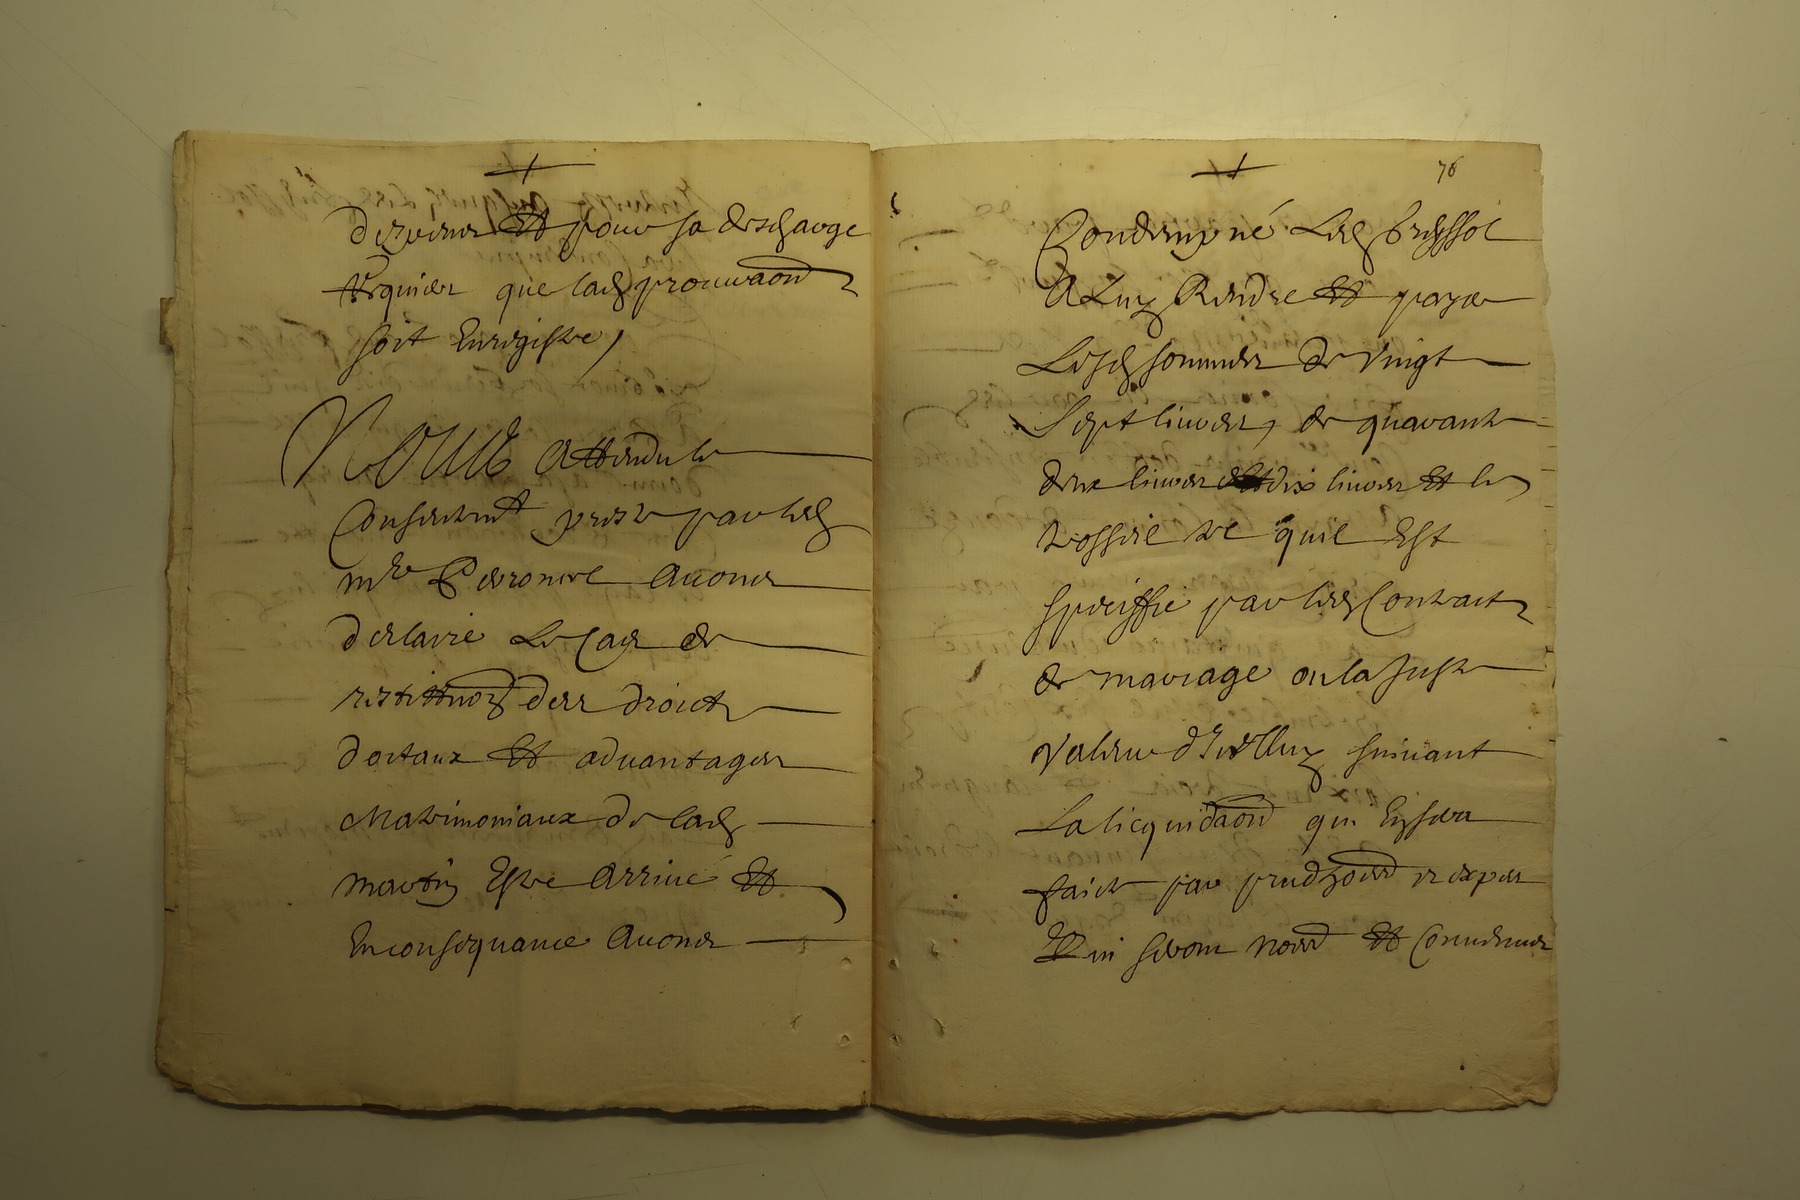 +
et pour sa descharge
requier que lad prouvaōn
soit Enregistre /
Nous Attendu le
Consentemt preste par led
mre Perronnel Auons
desclaré Le Cas de
restituōn des droicts
dottaux Et aduantages
Matrimoniaux de lad
martin Estre Arriué Et
En consequance Auons
+
78
Condempné Led brissol
A Luy Rendre Et payer
Lesd sommes de vingt
Sept liures, de quarante
deux liures dix liures Et le
trossel tel quil Est
speciffié par led Contract
de mariage ou la Juste
Valeur d'Icelluy suiuant
La licquidaōn qui En sera
faicte par prudhomes expers
qui seront només Et Conuenus